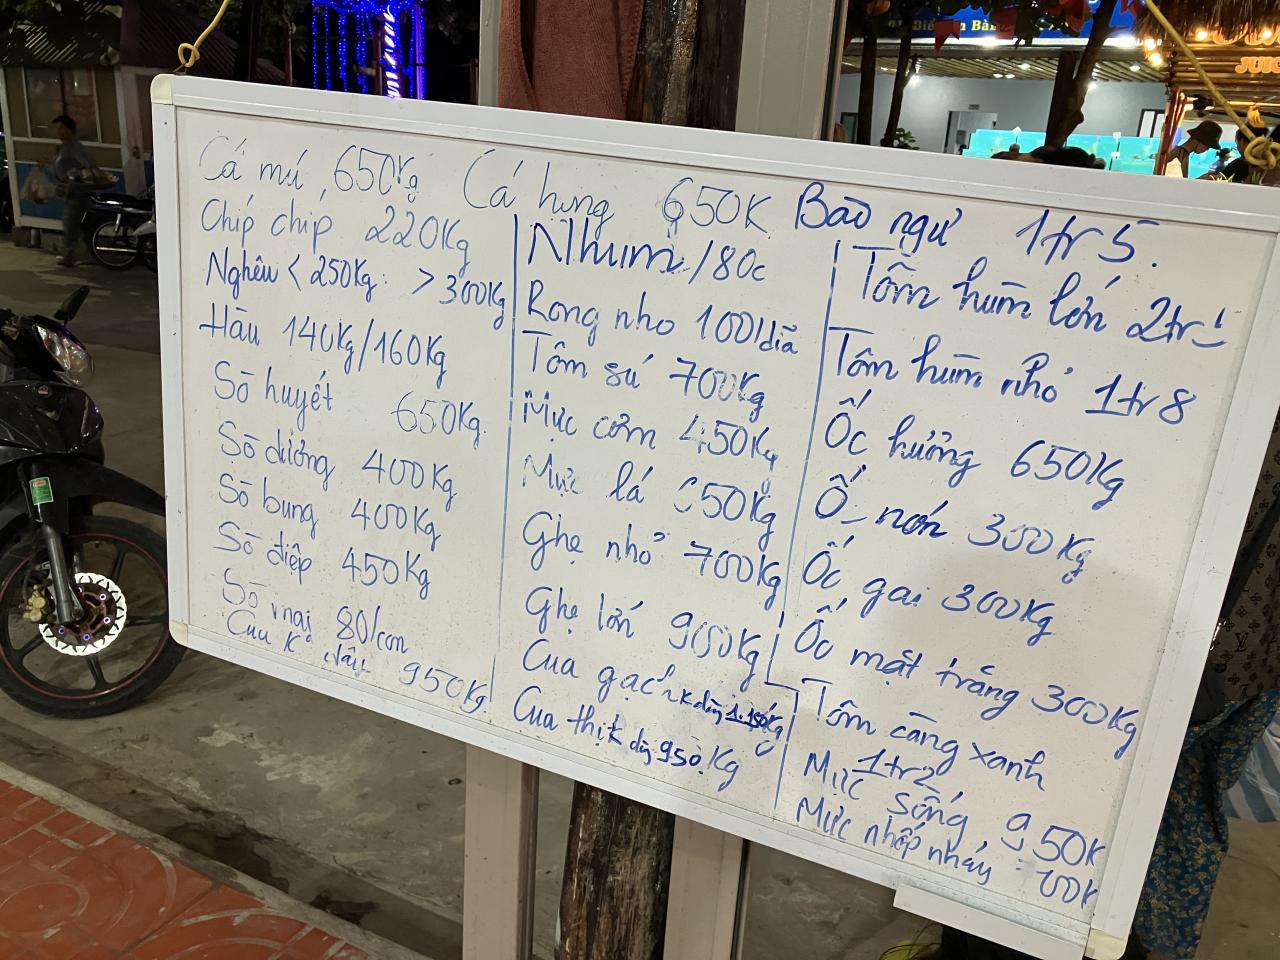 Cá mú 650Kg Cá hung 650K Bào ngư 1tr5.
Chíp chíp 220Kg
Nghêu < 250Kg. > 300Kg
Hàu 140Kg/160Kg
Sò huyết 650Kg.
Sò dương 400Kg
Sò bung 400Kg
Sò điệp 450Kg
Sò mai 80/con
Cua K dây 950Kg
Nhum /80c
Rong nho 100/dĩa
Tôm sú 700Kg
Mực cơm 450Kg
Mực lá 50Kg
Ghẹ nhỏ 700Kg
Ghẹ lớn 900Kg
Cua gạch K dây 1.150Kg
Cua thịt K dây 950.Kg
Tôm hùm lớn 2tr
Tôm hùm nhỏ 1tr8
Ốc hương 650Kg
Ốc nón 300Kg
Ốc gai 300Kg
Ốc mặt trăng 300Kg
Tôm càng xanh
1tr2
Mực sống 950K
Mực nhấp nháy 00K
JUIC